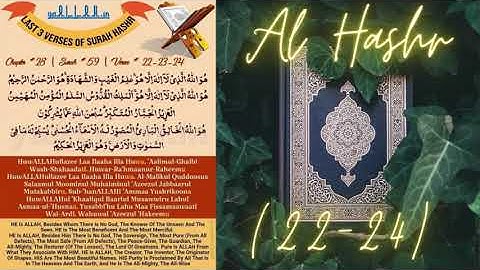 yaALLAH.in
LAST 3 VERSES OF SURAH HASHR
Chapter # 28 | Surah # 59 | Verse # 22-23-24
هُوَ اللهُ الَّذِىْ لَاۤ اِلٰهَ اِلَّا هُوَ عٰلِمُ الْغَيْبِ وَالشَّهَادَةِ هُوَ الرَّحْمٰنُ الرَّحِيْمُ
هُوَ اللهُ الَّذِىْ لَاۤ اِلٰهَ اِلَّا هُوَ اَلْمَلِكُ الْقُدُّوْسُ السَّلٰمُ الْمُؤْمِنُ الْمُهَيْمِنُ
الْعَزِيْزُ الْجَبَّارُ الْمُتَكَبِّرُ سُبْحٰنَ اللهِ عَمَّا يُشْرِكُوْنَ
هُوَ اللهُ الْخَالِقُ الْبَارِئُ الْمُصَوِّرُ لَهُ الْاَسْمَآءُ الْحُسْنٰى يُسَبِّحُ لَهٗ مَا فِى
السَّمٰوٰتِ وَالْاَرْضِ وَهُوَ الْعَزِيْزُ الْحَكِيْمُ
HuwALLAHullazee Laa Ilaaha Illa Huwa, 'Aalimul-Ghaibi
Wash-Shahaadati, Huwar-Rahmaanur-Raheemu
HuwALLAHullazee Laa Ilaaha Illa Huwa, Al-Malikul Quddoosus
Salaamul Moominul Muhaiminul 'Azeezul Jabbaarul
Mutakabbiru, Sub'haanALLAHI 'Ammaa Yushrikoona
HuwALLAHul 'Khaaliqul Baariul Musawwiru Lahul
Asmaa-ul-'Husnaa, Yusabbi'hu Lahu Maa Fissamaawaati
Wal-Ardi, Wahuwal 'Azeezul 'Hakeemu
HE Is ALLAH, Besides Whom There Is No God, The Knower Of The Unseen And The
Seen. HE Is The Most Beneficent And The Most Merciful.
HE Is ALLAH, Besides Him There Is No God, The Sovereign, The Most Pure (From All
Defects), The Most Safe (From All Defects), The Peace-Giver, The Guardian, The
All-Mighty, The Restorer Of The Losses), The Lord Of Greatness. Pure Is ALLAH From What
They Associate With HIM. HE Is ALLAH, The Creator, The Inventor, The Originator
Of Shapes, HIS Are The Most Beautiful Names. HIS Purity Is Proclaimed By All That Is
In The Heavens And The Earth, And He Is The All-Mighty, The All-Wise
Al Hashr
(22-24)